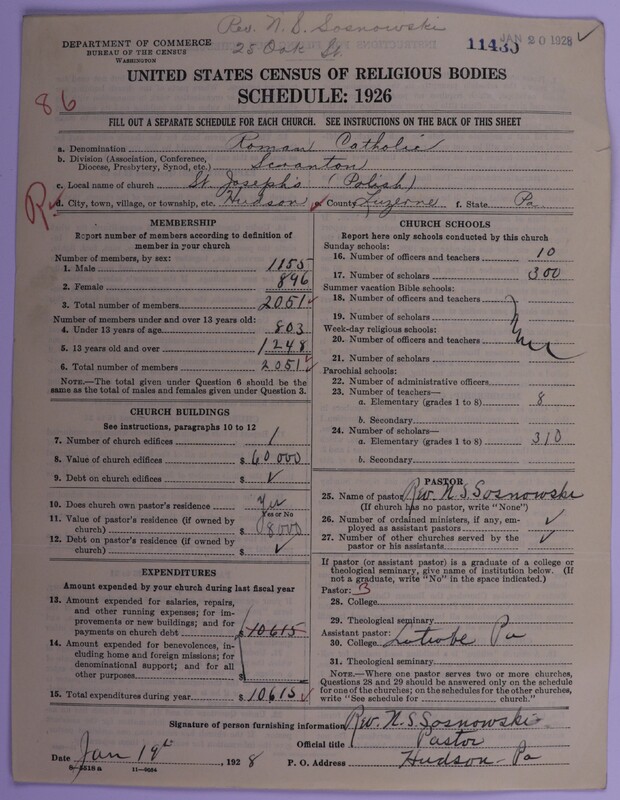 Rev. N. S. Sosnowski
25 Oak St.
DEPARTMENT OF COMMERCE
BUREAU OF THE CENSUS
WASHINGTON
11435
JAN 20 1928 ✓
UNITED STATES CENSUS OF RELIGIOUS BODIES
SCHEDULE: 1926
86
FILL OUT A SEPARATE SCHEDULE FOR EACH CHURCH. SEE INSTRUCTIONS ON THE BACK OF THIS SHEET
a. Denomination Roman Catholic
b. Division (Association, Conference, Diocese, Presbytery, Synod, etc.) Scranton
c. Local name of church St Joseph's (Polish)
d. City, town, village, or township, etc. Hudson e. County Luzerne f. State Pa
MEMBERSHIP
Report number of members according to definition of
member in your church
Number of members, by sex:
1. Male 1155
2. Female 896
3. Total number of members 2051 ✓
Number of members under and over 13 years old:
4. Under 13 years of age 803
5. 13 years old and over 1248
6. Total number of members 2051 ✓
NOTE.—The total given under Question 6 should be the
same as the total of males and females given under Question 3.
CHURCH BUILDINGS
See instructions, paragraphs 10 to 12
7. Number of church edifices 1
8. Value of church edifices $ 60000
9. Debt on church edifices $ ✓
10. Does church own pastor's residence Yes
Yes or No
11. Value of pastor's residence (if owned by
church) $ 8000
12. Debt on pastor's residence (if owned by
church) $ ✓
EXPENDITURES
Amount expended by your church during last fiscal year
13. Amount expended for salaries, repairs,
and other running expenses; for im-
provements or new buildings; and for
payments on church debt $ 10615
14. Amount expended for benevolences, in-
cluding home and foreign missions; for
denominational support; and for all
other purposes $
15. Total expenditures during year $ 10615 ✓
CHURCH SCHOOLS
Report here only schools conducted by this church
Sunday schools:
16. Number of officers and teachers 10
17. Number of scholars 300
Summer vacation Bible schools:
18. Number of officers and teachers
19. Number of scholars
Week-day religious schools:
20. Number of officers and teachers
21. Number of scholars
Parochial schools:
22. Number of administrative officers
23. Number of teachers—
a. Elementary (grades 1 to 8) 8
b. Secondary
24. Number of scholars—
a. Elementary (grades 1 to 8) 310
b. Secondary
PASTOR
25. Name of pastor Rev. N. S. Sosnowski
(If church has no pastor, write "None")
26. Number of ordained ministers, if any, em-
ployed as assistant pastors ✓
27. Number of other churches served by the
pastor or his assistants ✓
If pastor (or assistant pastor) is a graduate of a college or
theological seminary, give name of institution below. (If
not a graduate, write "No" in the space indicated.)
Pastor: B
28. College
29. Theological seminary
Assistant pastor:
30. College Latrobe Pa
31. Theological seminary
NOTE.—Where one pastor serves two or more churches,
Questions 28 and 29 should be answered only on the schedule
for one of the churches; on the schedules for the other churches,
write "See schedule for church."
Signature of person furnishing information Rev. N. S. Sosnowski
Official title Pastor
Date Jan 19th, 1928 P. O. Address Hudson - Pa
8-5518 a 11-9084